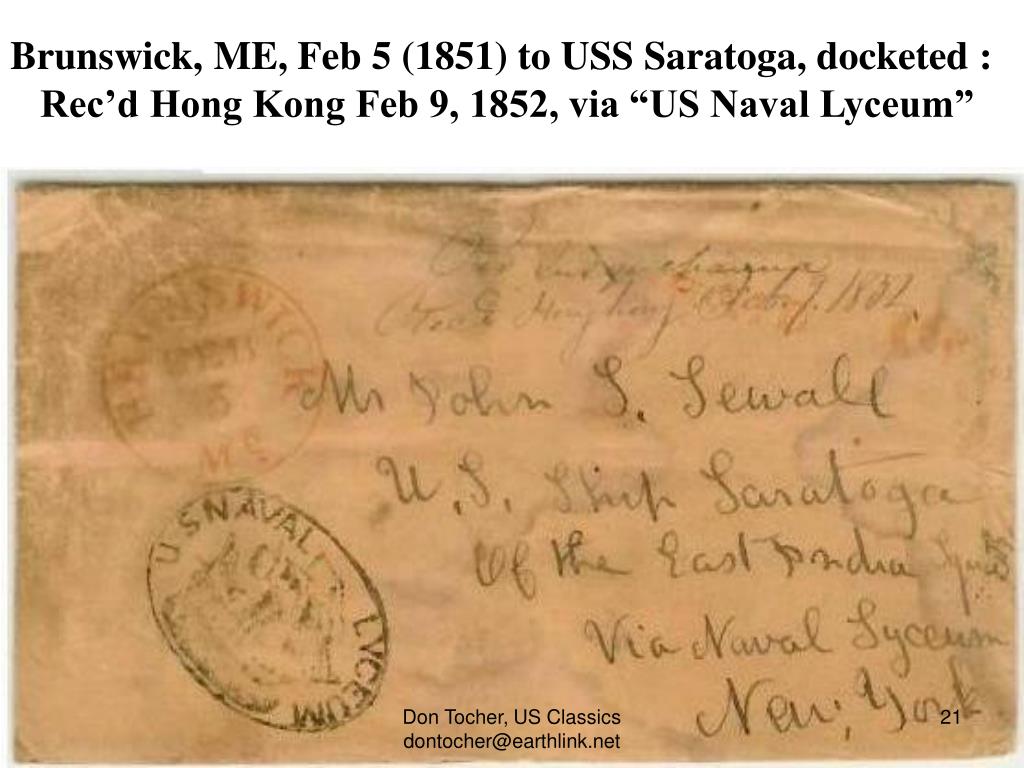 Brunswick, ME, Feb 5 (1851) to USS Saratoga, docketed :
Rec’d Hong Kong Feb 9, 1852, via “US Naval Lyceum”
BRUNSWICK
5
ME
1852.
Mr John S. Sewall
U.S. Ship Saratoga
Of the East India
Via Naval Lyceum
New York
U S NAVAL LYCEUM
Don Tocher, US Classics
dontocher@earthlink.net
21